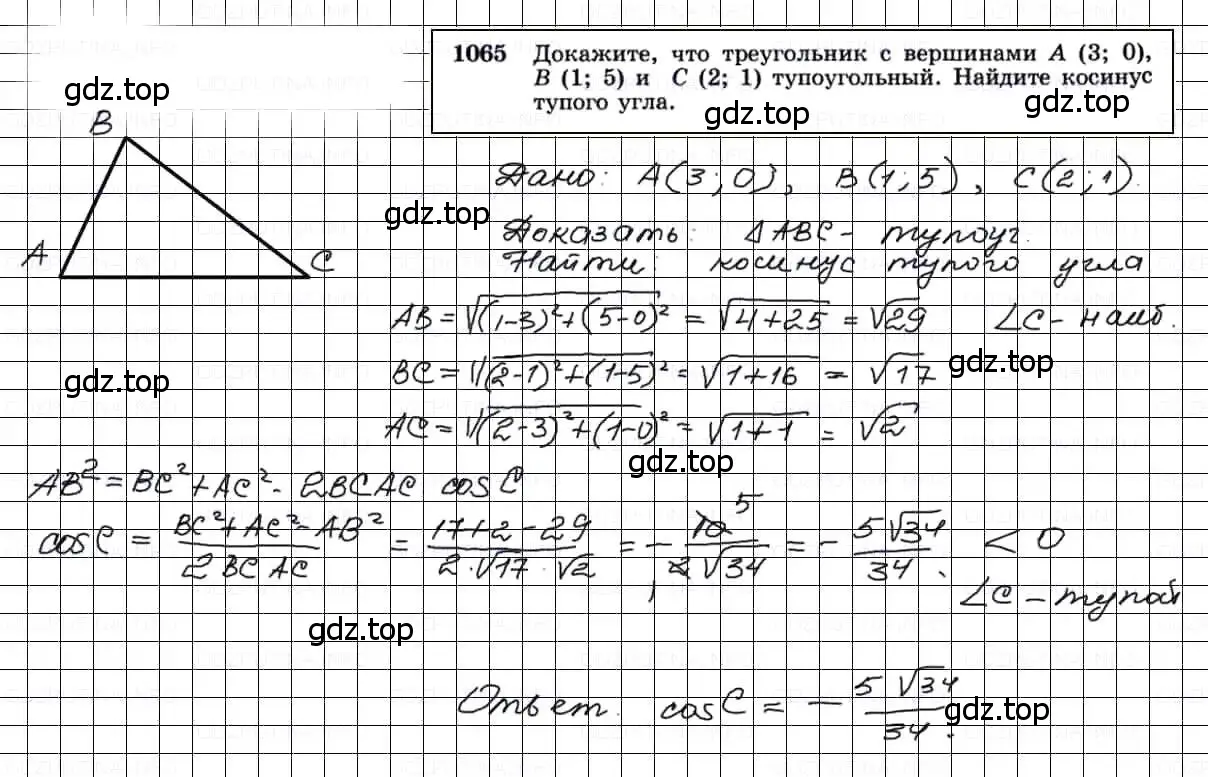 1065 Докажите, что треугольник с вершинами A (3; 0),
B (1; 5) и C (2; 1) тупоугольный. Найдите косинус
тупого угла.
gdz.top
gdz.top
B
Дано: A(3;0), B(1;5), C(2;1).
gdz.top
Доказать: ΔABC - тупоуг.
A
C
Найти: косинус тупого угла
AB = √((1-3)²+(5-0)²) = √(4+25) = √29 ∠C - наиб.
gdz.top
gdz.top
BC = √((2-1)²+(1-5)²) = √(1+16) = √17
AC = √((2-3)²+(1-0)²) = √(1+1) = √2
gdz.top
AB² = BC²+AC² - 2BCAC cosC
cosC = (BC²+AC²-AB²)/(2BCAC) = (17+2-29)/(2·√17·√2) = - 10 5/(2 1 √34) = - 5√34/34 < 0
∠C - тупой
gdz.top
Ответ. cosC = - 5√34/34.
gdz.top